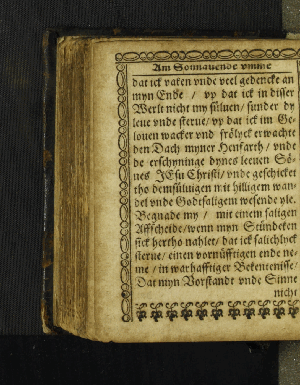 Am Sonnauende vmme
dat ick vaken vnde veel gedencke an
myn Ende / vp dat ick in disser
Werlt nicht my süluen / sunder dy
leue vnde sterue / vp dat ick im Ge-
louen wacker vnd frölyck erwachte
den Dach myner Henfarth / vnde
de erschyninge dynes leeuen Sö-
nes JEsu Christi / vnde geschicket
tho demsüluigen mit hilligem wan-
del vnde Godtsaligem wesende yle.
Begnade my / mit einem saligen
Affscheide / wenn myn Stündeken
sick hertho nahlet / dat ick salichlyck
sterue / einen vornüfftigen ende ne-
me / in warhafftiger Bekentenisse /
Dat myn Vorstandt vnde Sinne
nicht